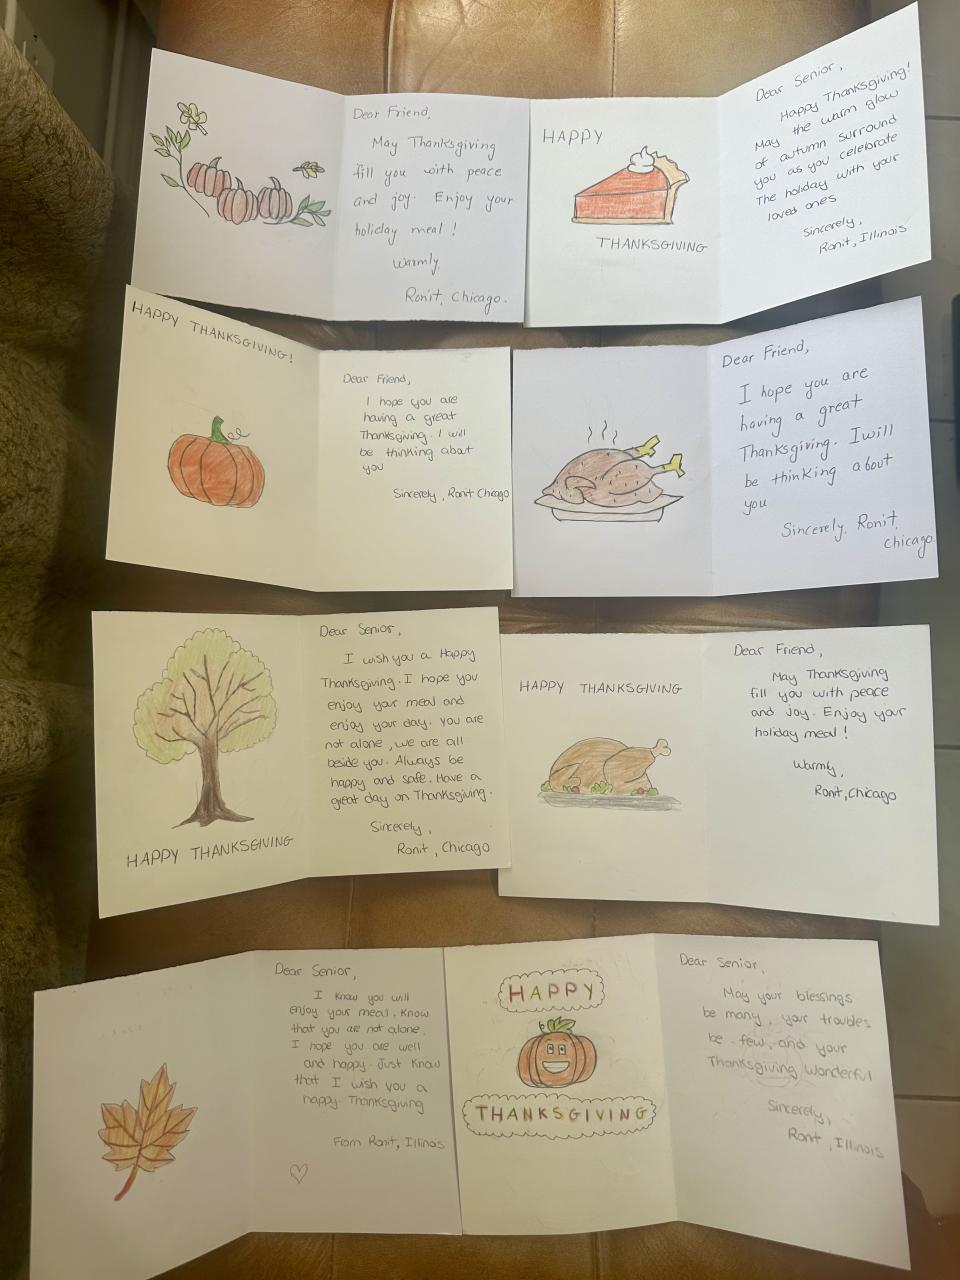 Dear Friend,
May Thanksgiving
fill you with peace
and joy. Enjoy your
holiday meal !
Warmly,
Ronit, Chicago.
HAPPY
THANKSGIVING
Dear Senior,
Happy Thanksgiving!
May the warm glow
of autumn surround
you as you celebrate
The holiday with your
loved ones
Sincerely,
Ronit, Illinois
HAPPY THANKSGIVING!
Dear Friend,
I hope you are
having a great
Thanksgiving. I will
be thinking about
you
Sincerely, Ronit Chicago
Dear Friend,
I hope you are
having a great
Thanksgiving. I will
be thinking about
you
Sincerely, Ronit,
Chicago.
HAPPY THANKSGIVING
Dear Senior,
I wish you a Happy
Thanksgiving. I hope you
enjoy your meal and
enjoy your day. you are
not alone, we are all
beside you. Always be
happy and safe. Have a
great day on Thanksgiving.
Sincerely,
Ronit, Chicago
HAPPY THANKSGIVING
Dear Friend,
May Thanksgiving
fill you with peace
and joy. Enjoy your
holiday meal !
Warmly,
Ronit, Chicago
Dear Senior,
I Know you will
enjoy your meal. Know
that you are not alone.
I hope you are well
and happy. Just know
that I wish you a
happy Thanksgiving
From Ronit, Illinois
HAPPY
THANKSGIVING
Dear Senior,
May your blessings
be many, your troubles
be few, and your
Thanksgiving Wonderful
Sincerely,
Ronit, Illinois